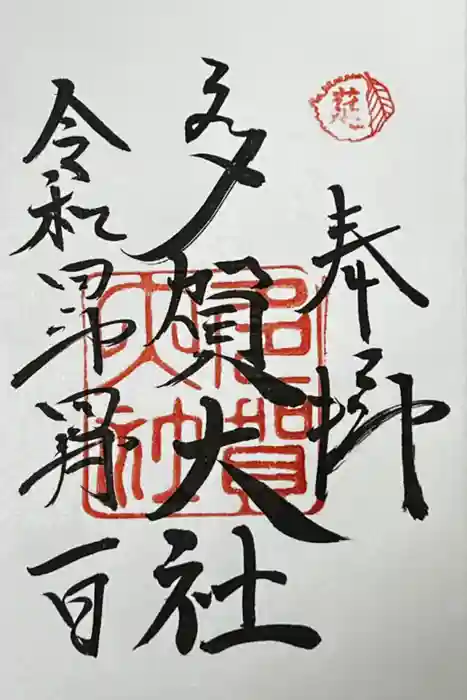 奉拝
多賀大社
令和四年四月一日
多賀
大社